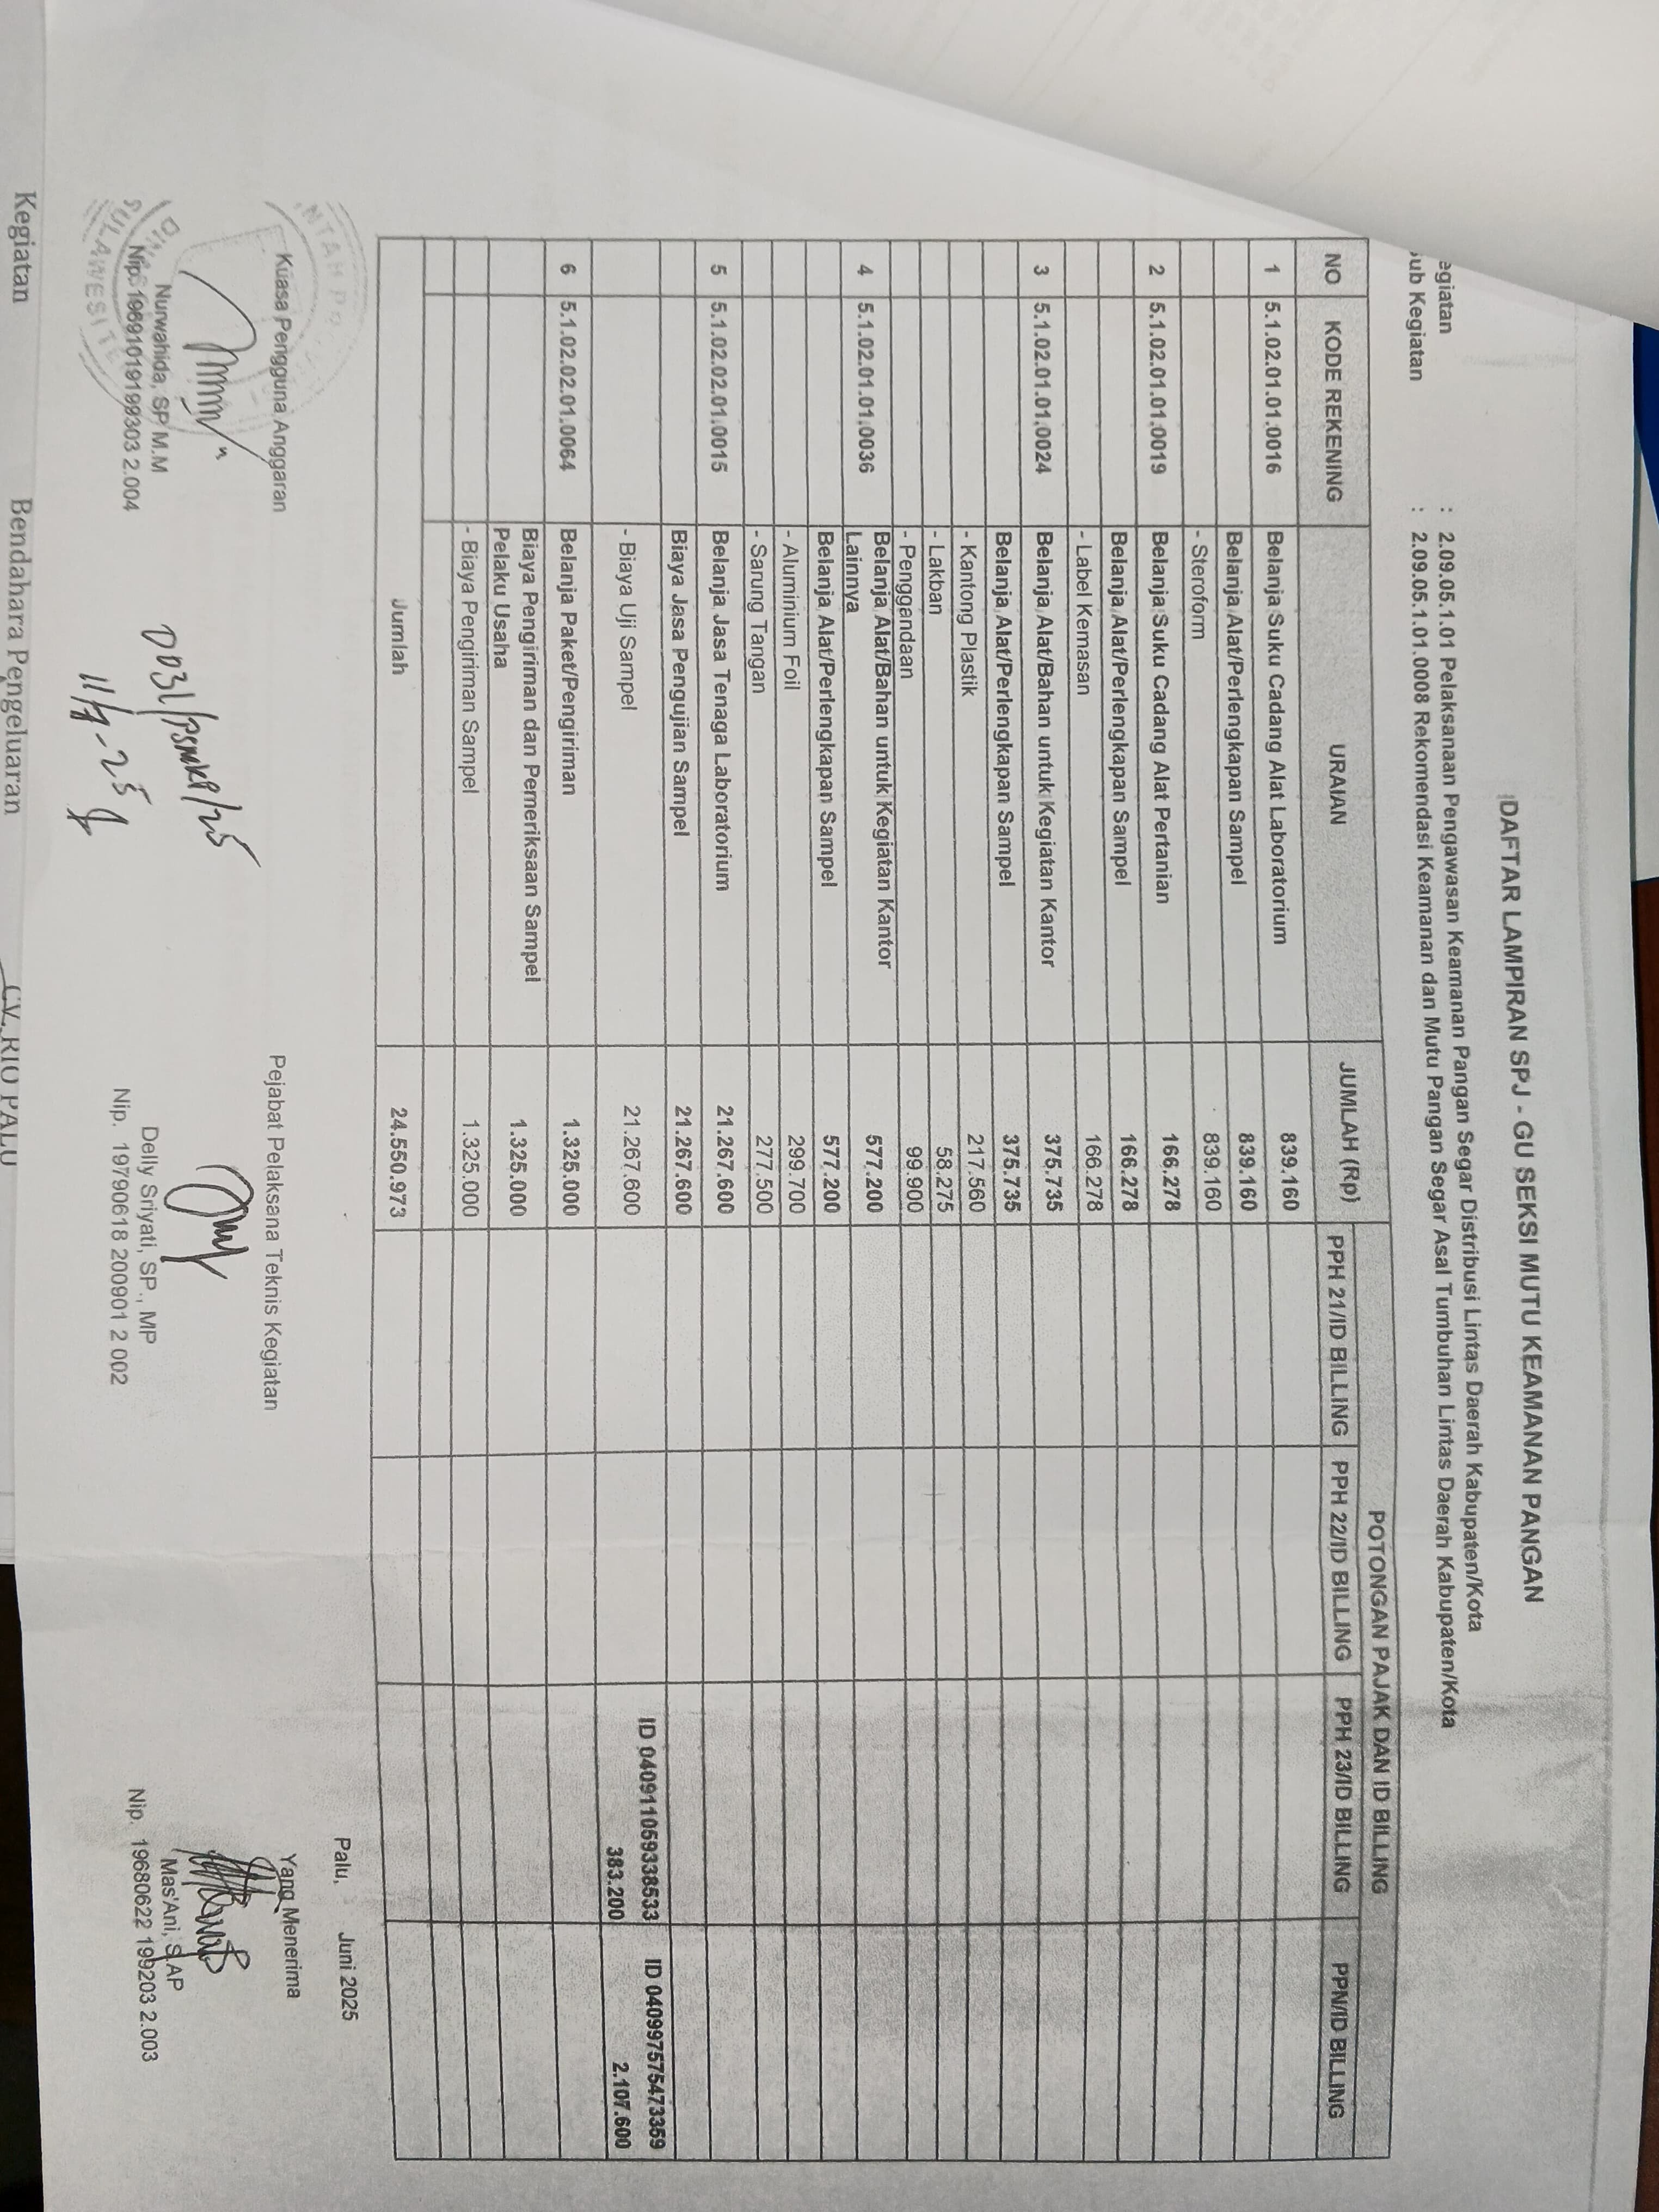 DAFTAR LAMPIRAN SPJ - GU SEKSI MUTU KEAMANAN PANGAN
egiatan : 2.09.05.1.01 Pelaksanaan Pengawasan Keamanan Pangan Segar Distribusi Lintas Daerah Kabupaten/Kota
ub Kegiatan : 2.09.05.1.01.0008 Rekomendasi Keamanan dan Mutu Pangan Segar Asal Tumbuhan Lintas Daerah Kabupaten/Kota
POTONGAN PAJAK DAN ID BILLING
NO KODE REKENING URAIAN JUMLAH (Rp) PPH 21/ID BILLING PPH 22/ID BILLING PPH 23/ID BILLING PPN/ID BILLING
1 5.1.02.01.01.0016 Belanja Suku Cadang Alat Laboratorium 839.160
Belanja Alat/Perlengkapan Sampel 839.160
- Steroform 839.160
2 5.1.02.01.01.0019 Belanja Suku Cadang Alat Pertanian 166.278
Belanja Alat/Perlengkapan Sampel 166.278
- Label Kemasan 166.278
3 5.1.02.01.01.0024 Belanja Alat/Bahan untuk Kegiatan Kantor 375.735
Belanja Alat/Perlengkapan Sampel 375.735
- Kantong Plastik 217.560
- Lakban 58.275
- Penggandaan 99.900
4 5.1.02.01.01.0036 Belanja Alat/Bahan untuk Kegiatan Kantor
Lainnya 577.200
Belanja Alat/Perlengkapan Sampel 577.200
- Aluminium Foil 299.700
- Sarung Tangan 277.500
5 5.1.02.02.01.0015 Belanja Jasa Tenaga Laboratorium 21.267.600
Biaya Jasa Pengujian Sampel 21.267.600
ID 040911059338533 ID 040997575473359
- Biaya Uji Sampel 21.267.600 383.200 2.107.600
6 5.1.02.02.01.0064 Belanja Paket/Pengiriman 1.325.000
Biaya Pengiriman dan Pemeriksaan Sampel
Pelaku Usaha 1.325.000
- Biaya Pengiriman Sampel 1.325.000
Jumlah 24.550.973
Palu, Juni 2025
Kuasa Pengguna Anggaran Pejabat Pelaksana Teknis Kegiatan Yang Menerima
Nurwahida, SP M.M Delly Sriyati, SP., MP Mas'Ani, S.AP
Nip. 19691019199303 2.004 Nip. 19790618 200901 2 002 Nip. 19680622 199203 2.003
0031/PSMKP/25
11/7-25
Kegiatan Bendahara Pengeluaran CV. RIO PALU